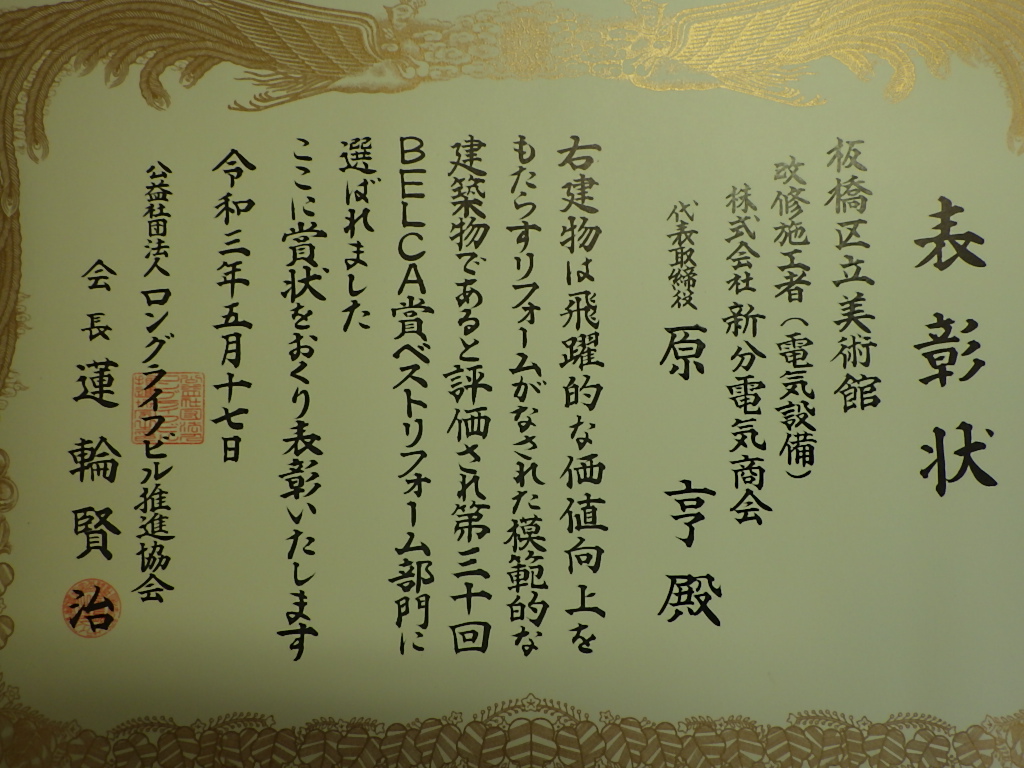 表彰状
板橋区立美術館
改修施工者(電気設備)
株式会社 新分電気商会
代表取締役 原 亨 殿
右建物は飛躍的な価値向上を
もたらすリフォームがなされた模範的な
建築物であると評価され第三十回
BELCA賞ベストリフォーム部門に
選ばれました
ここに賞状をおくり表彰いたします
令和三年五月十七日
公益社団法人 ロングライフビル推進協会
会長 蓮輪賢治